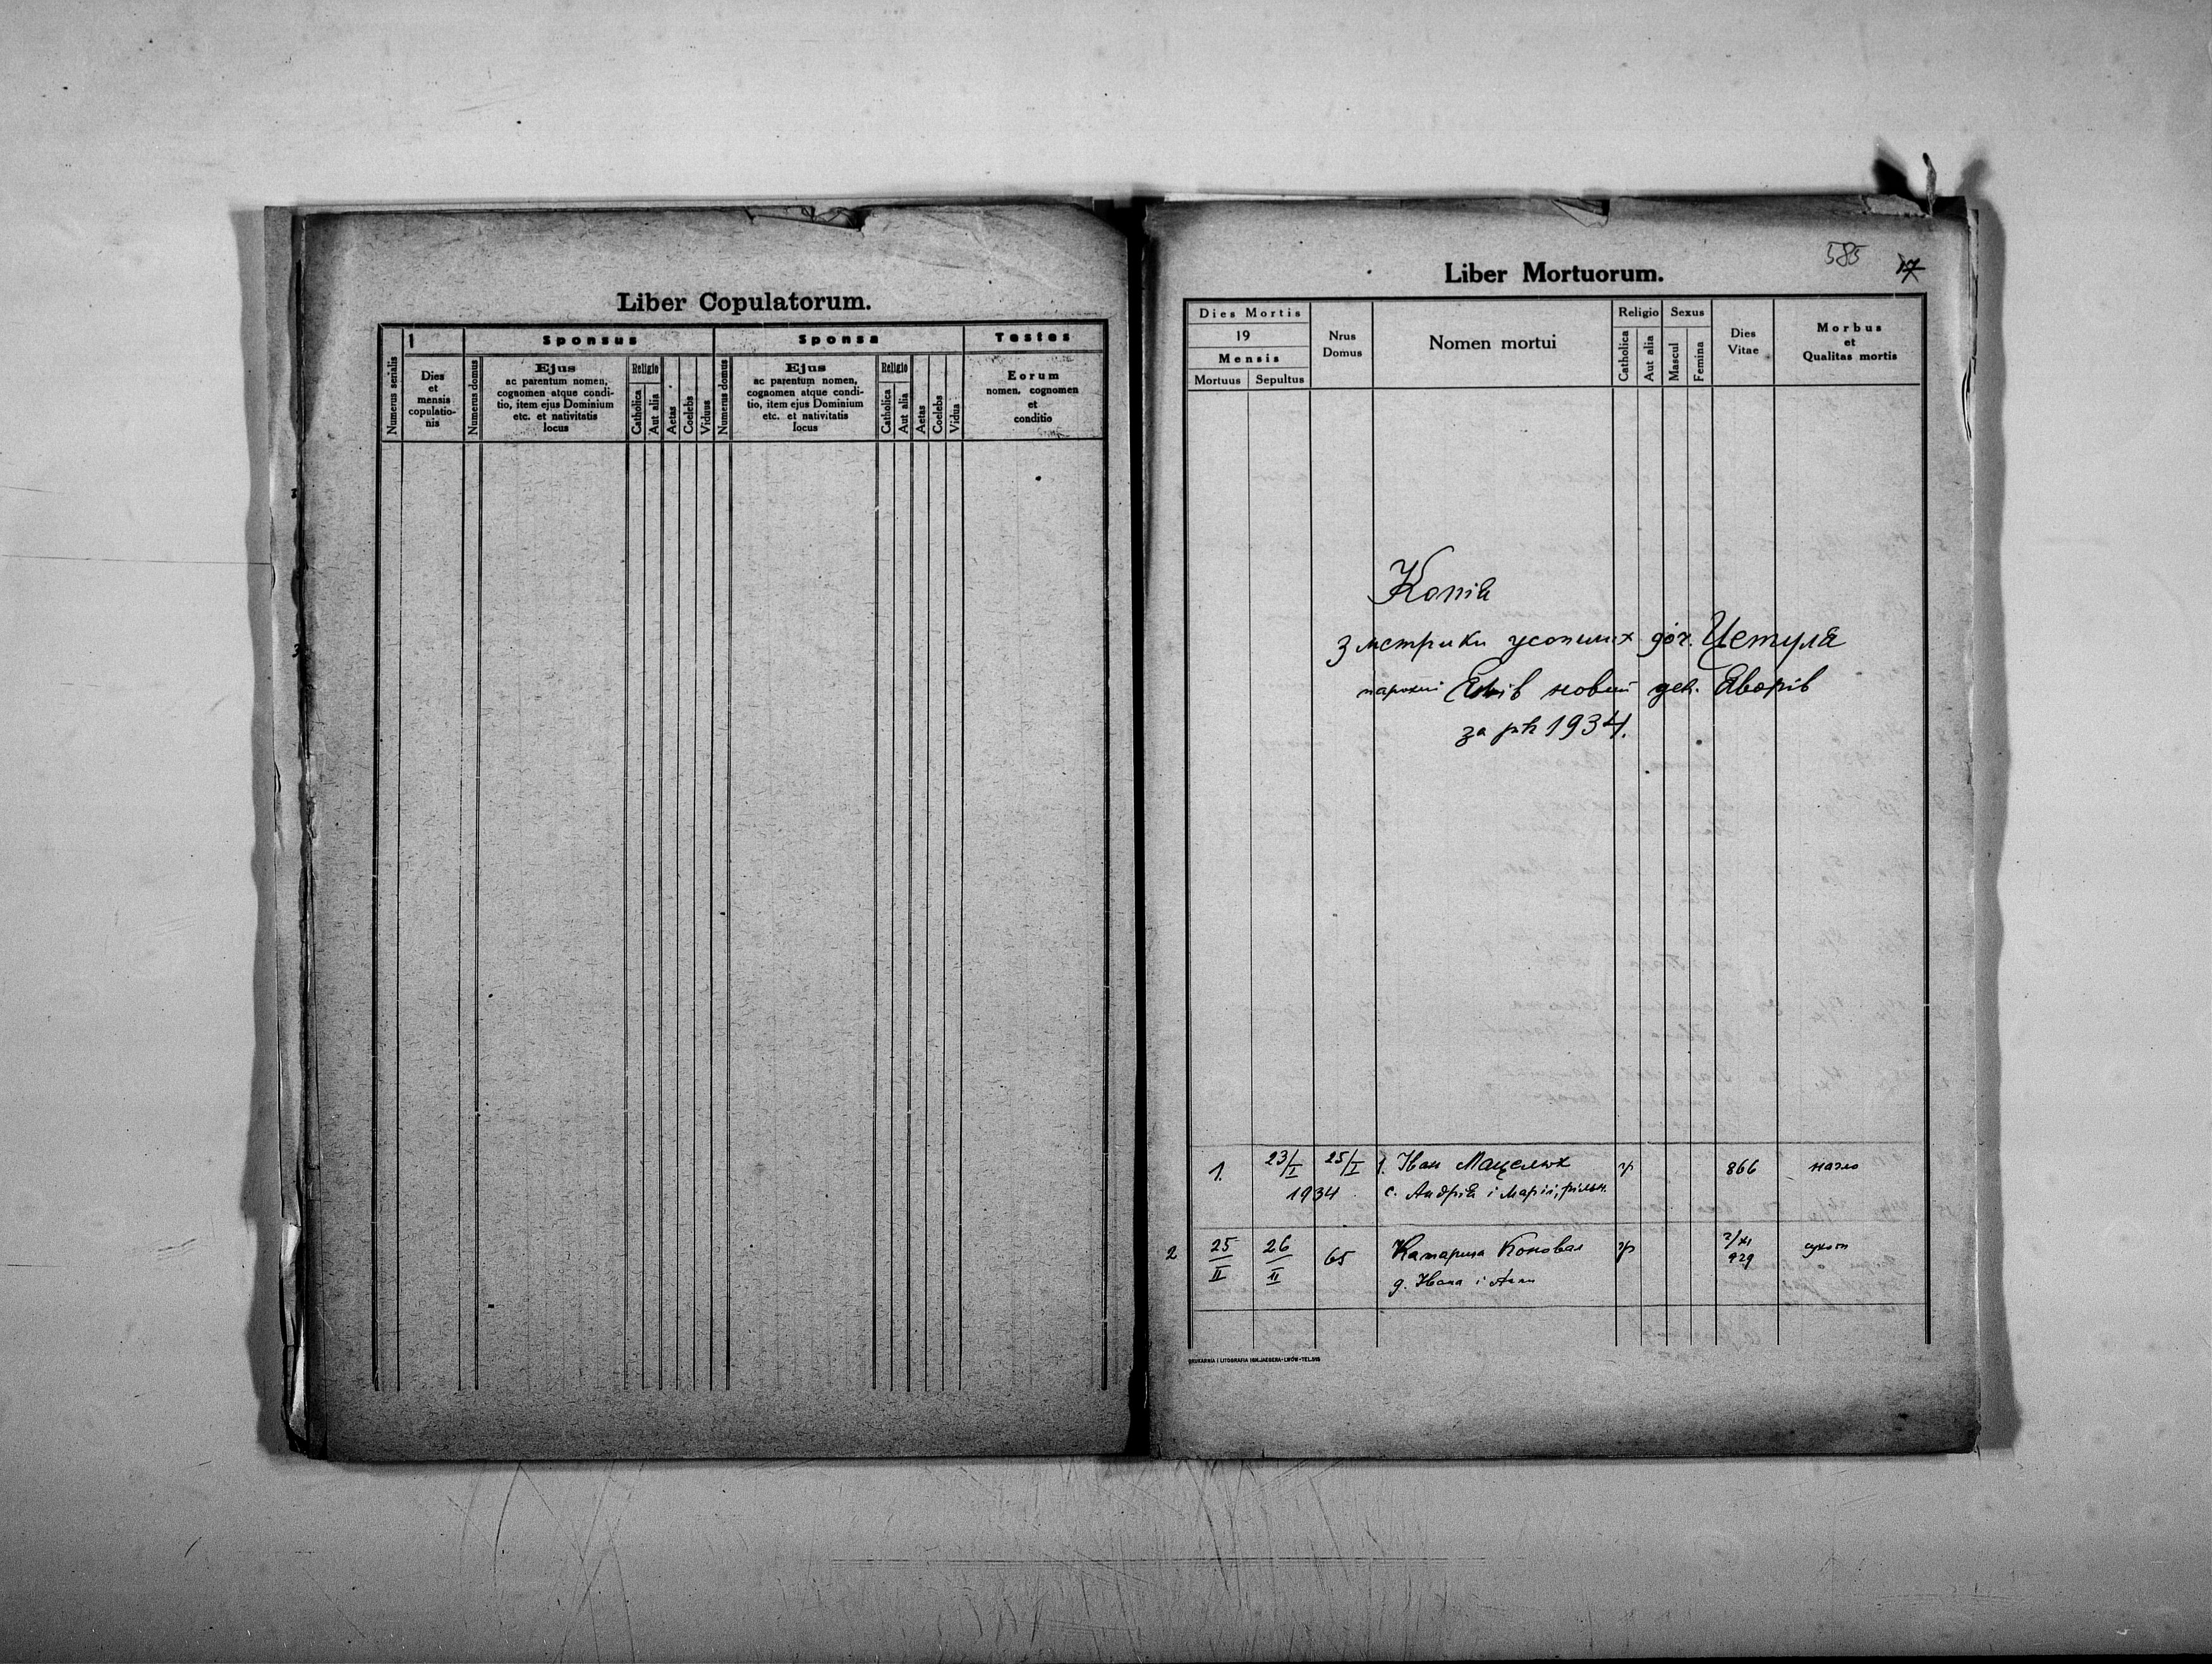 Liber Copulatorum.
Numerus serialis
1
Dies
et
mensis
copulatio-
nis
Sponsus
Numerus domus
Ejus
ac parentum nomen,
cognomen atque condi-
tio, item ejus Dominium
etc. et nativitatis
locus
Religio
Catholica
Aut alia
Aetas
Coelebs
Viduus
Sponsa
Numerus domus
Ejus
ac parentum nomen,
cognomen atque condi-
tio, item ejus Dominium
etc. et nativitatis
locus
Religio
Catholica
Aut alia
Aetas
Coelebs
Vidus
Testes
Eorum
nomen, cognomen
et
conditio
585
17
Liber Mortuorum.
Dies Mortis
19
Mensis
Mortuus
Sepultus
Nrus
Domus
Nomen mortui
Religio
Catholica
Aut alia
Sexus
Mascul
Femina
Dies
Vitae
Morbus
et
Qualitas mortis
Копія
з метрики усопших доч. Цетуля
парохії новий дек. Яворів
за рік 1934.
1. 23/I 25/I 1. Іван Мацелюх гр 866
1934 с. Андрія і Марії, рільн.
2 25/II 26/II 65 Катарина Коновал гр 2/XI 929 сухот
д. Івана і Анни
DRUKARNIA I LITOGRAFIA IGN.JAEGERA-LWÓW-TEL.515